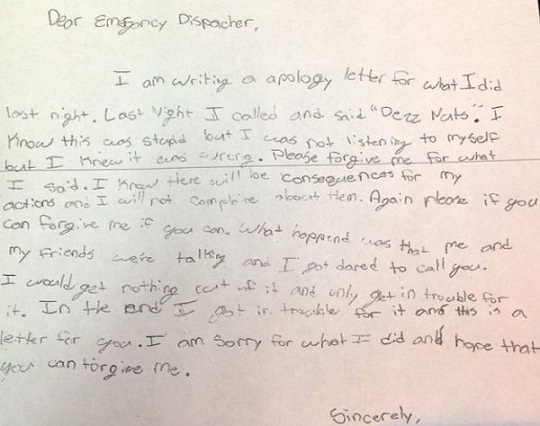 Dear Emergency Dispacher,
I am writing a apology letter for what I did
last night. Last Night I called and said "Dezz Nuts". I
Know this was stupid but I was not listening to myself
but I knew it was wrong. Please forgive me for what
I said. I know there will be consequences for my
actions and I will not complaine about them. Again please if you
can forgive me if you can. What happend was that me and
my friends were talking and I got dared to call you.
I would get nothing out of it and only get in trouble for
it. In the end I got in trouble for it and this is a
letter for you. I am sorry for what I did and hope that
you can forgive me.
Sincerely,